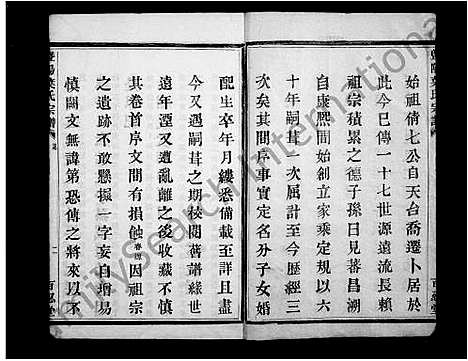 始祖倩七公自天台喬遷卜居於
此今巳傳一十七世源遠流長賴
祖宗積累之德子孫日見蕃昌溯
自康熙間始創立家乘定規以六
十年嗣葺一次屆計至今歷經三
次矣其間序事實定名分子女婚
配生卒年月縷悉備載至詳且盡
今又遇嗣葺之期披閱舊譜緣世
遠年湮又遭亂離之後收藏不慎
其卷首序文間有損蝕因祖宗
之遺跡不敢懸揣一字妄自增易
慎闕文無諱第恐傳之將來以不
葉氏宗譜
二